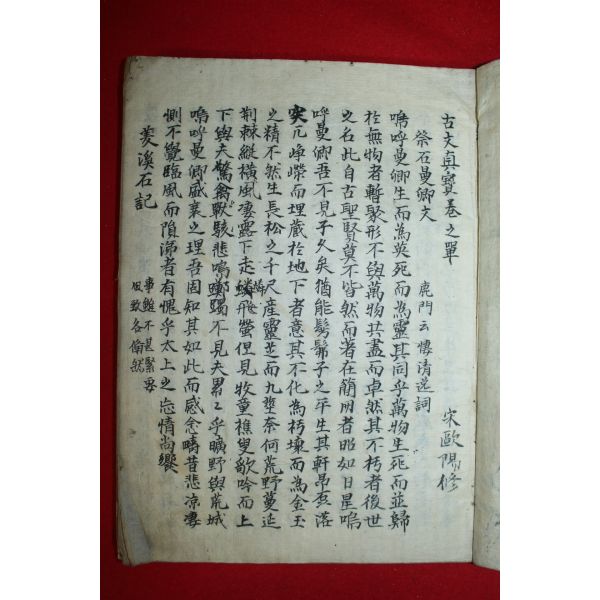 古文眞寶卷之單
祭石曼卿文 鹿門云悽清逸詞 宋歐陽修
嗚呼曼卿生而為英死而為靈其同乎萬物生死而並歸
於無物者暫聚形不與萬物共盡而卓然其不朽者後世
之名此自古聖賢莫不皆然而著在簡冊者昭如日星嗚
呼曼卿吾不見子久矣猶能髣髴子之平生其軒昂磊落
突兀崢嶸而埋藏於地下者意其不化為朽壤而為金玉
之精不然生長松之千尺産靈芝而九莖奈何荒野蔓延
荊棘縱橫風凄露下走燐飛螢但見牧童樵叟歌吟而上
下與夫驚禽獸駭悲鳴躑躅不見夫累〻乎曠野與荒城
嗚呼曼卿盛衰之理吾固知其如此而感念疇昔悲凉凄
惻不覺臨風而隕涕者有愧乎太上之忘情尚饗
菱溪石記
事雖不甚緊要
致各然